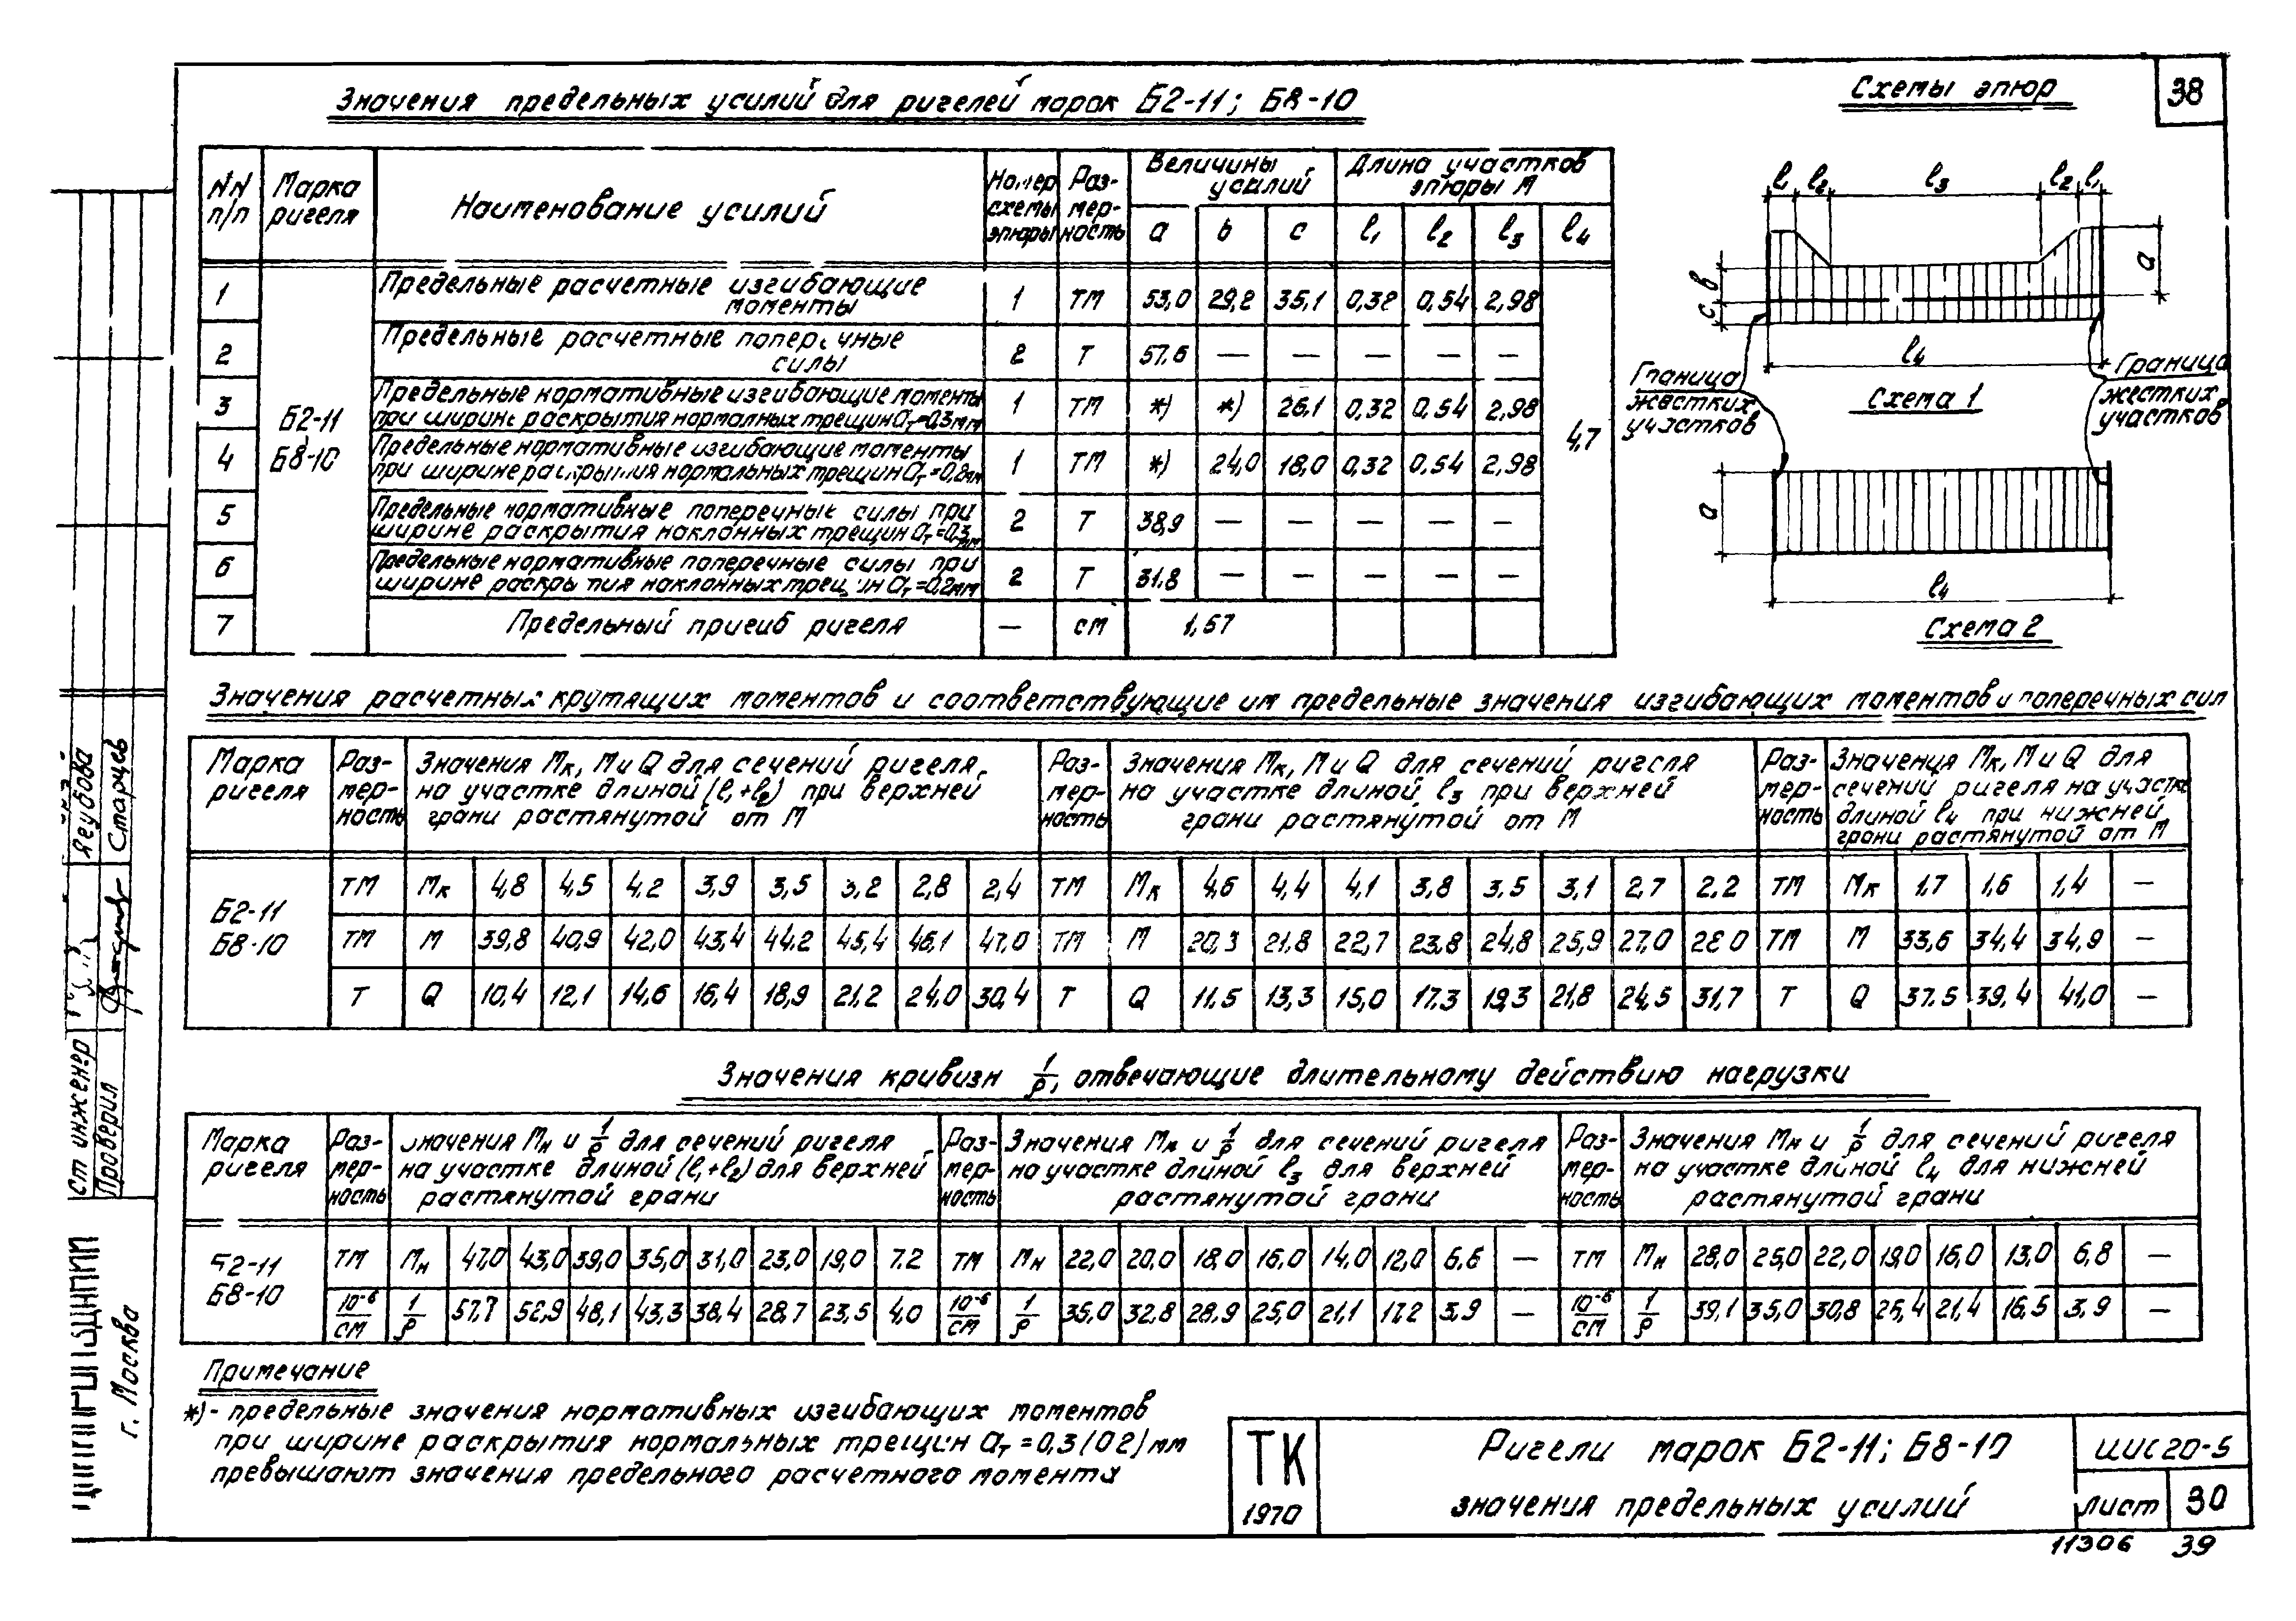 Значения предельных усилий для ригелей марок Б2-11; Б8-10
Схемы эпюр
38
NN п/п
Марка ригеля
Наименование усилий
Номер схемы эпюры
Раз-мер-ность
Величины усилий
Длина участков эпюры М
a b c l1 l2 l3 l4
1 Предельные расчетные изгибающие моменты 1 тм 53,0 29,2 35,1 0,32 0,54 2,98
2 Предельные расчетные поперечные силы 2 т 57,6 — — — — —
3 Предельные нормативные изгибающие моменты при ширине раскрытия нормалных трещин aт=0,3мм 1 тм *) *) 26,1 0,32 0,54 2,98
4 Предельные нормативные изгибающие моменты при ширине раскрытия нормальных трещин aт=0,2мм 1 тм *) 24,0 18,0 0,32 0,54 2,98
5 Предельные нормативные поперечные силы при ширине раскрытия наклонных трещин aт=0,3мм 2 т 38,9 — — — — —
6 Предельные нормативные поперечные силы при ширине раскрытия наклонных трещин aт=0,2мм 2 т 31,8 — — — — —
7 Предельный пригиб ригеля — см 1,57
Б2-11
Б8-10
4,7
l1 l2 l3 l2 l1
a
b
c
l4
Граница жестких участков
Граница жестких участков
Схема 1
a
l4
Схема 2
Значения расчетных крутящих моментов и соответствующие им предельные значения изгибающих моментов и поперечных сил
Марка ригеля
Раз-мер-ность
Значения Мк, М и Q для сечений ригеля на участке длиной (l1+l2) при верхней грани растянутой от М
Раз-мер-ность
Значения Мк, М и Q для сечений ригеля на участке длиной l3 при верхней грани растянутой от М
Раз-мер-ность
Значения Мк, М и Q для сечений ригеля на участке длиной l4 при нижней грани растянутой от М
Б2-11
Б8-10
тм Мк 4,8 4,5 4,2 3,9 3,5 3,2 2,8 2,4 тм Мк 4,6 4,4 4,1 3,8 3,5 3,1 2,7 2,2 тм Мк 1,7 1,6 1,4 —
тм М 39,8 40,9 42,0 43,4 44,2 45,4 46,1 47,0 тм М 20,3 21,8 22,7 23,8 24,8 25,9 27,0 28,0 тм М 33,6 34,4 34,9 —
т Q 10,4 12,1 14,6 16,4 18,9 21,2 24,0 30,4 т Q 11,5 13,3 15,0 17,3 19,3 21,8 24,5 31,7 т Q 37,5 39,4 41,0 —
Значения кривизн 1/ρ, отвечающие длительному действию нагрузки
Марка ригеля
Раз-мер-ность
Значения Мн и 1/ρ для сечений ригеля на участке длиной (l1+l2) для верхней растянутой грани
Раз-мер-ность
Значения Мн и 1/ρ для сечений ригеля на участке длиной l3 для верхней растянутой грани
Раз-мер-ность
Значения Мн и 1/ρ для сечений ригеля на участке длиной l4 для нижней растянутой грани
Б2-11
Б8-10
тм Мн 47,0 43,0 39,0 35,0 31,0 23,0 19,0 7,2 тм Мн 22,0 20,0 18,0 16,0 14,0 12,0 6,6 — тм Мн 28,0 25,0 22,0 19,0 16,0 13,0 6,8 —
10⁻⁶/см 1/ρ 57,7 52,9 48,1 43,3 38,4 28,7 23,5 4,0 10⁻⁶/см 1/ρ 35,0 32,8 28,9 25,0 21,1 17,2 3,9 — 10⁻⁶/см 1/ρ 39,1 35,0 30,8 25,4 21,4 16,5 3,9 —
Примечание
*) - предельные значения нормативных изгибающих моментов
при ширине раскрытия нормальных трещин aт = 0,3 (0 2) мм
превышают значения предельного расчетного момента
ТК
1970
Ригели марок Б2-11; Б8-10
значения предельных усилий
ИИС20-5
лист 30
11306 39
Ст инженер
Проверил
Ягубова
Старцев
г. Москва